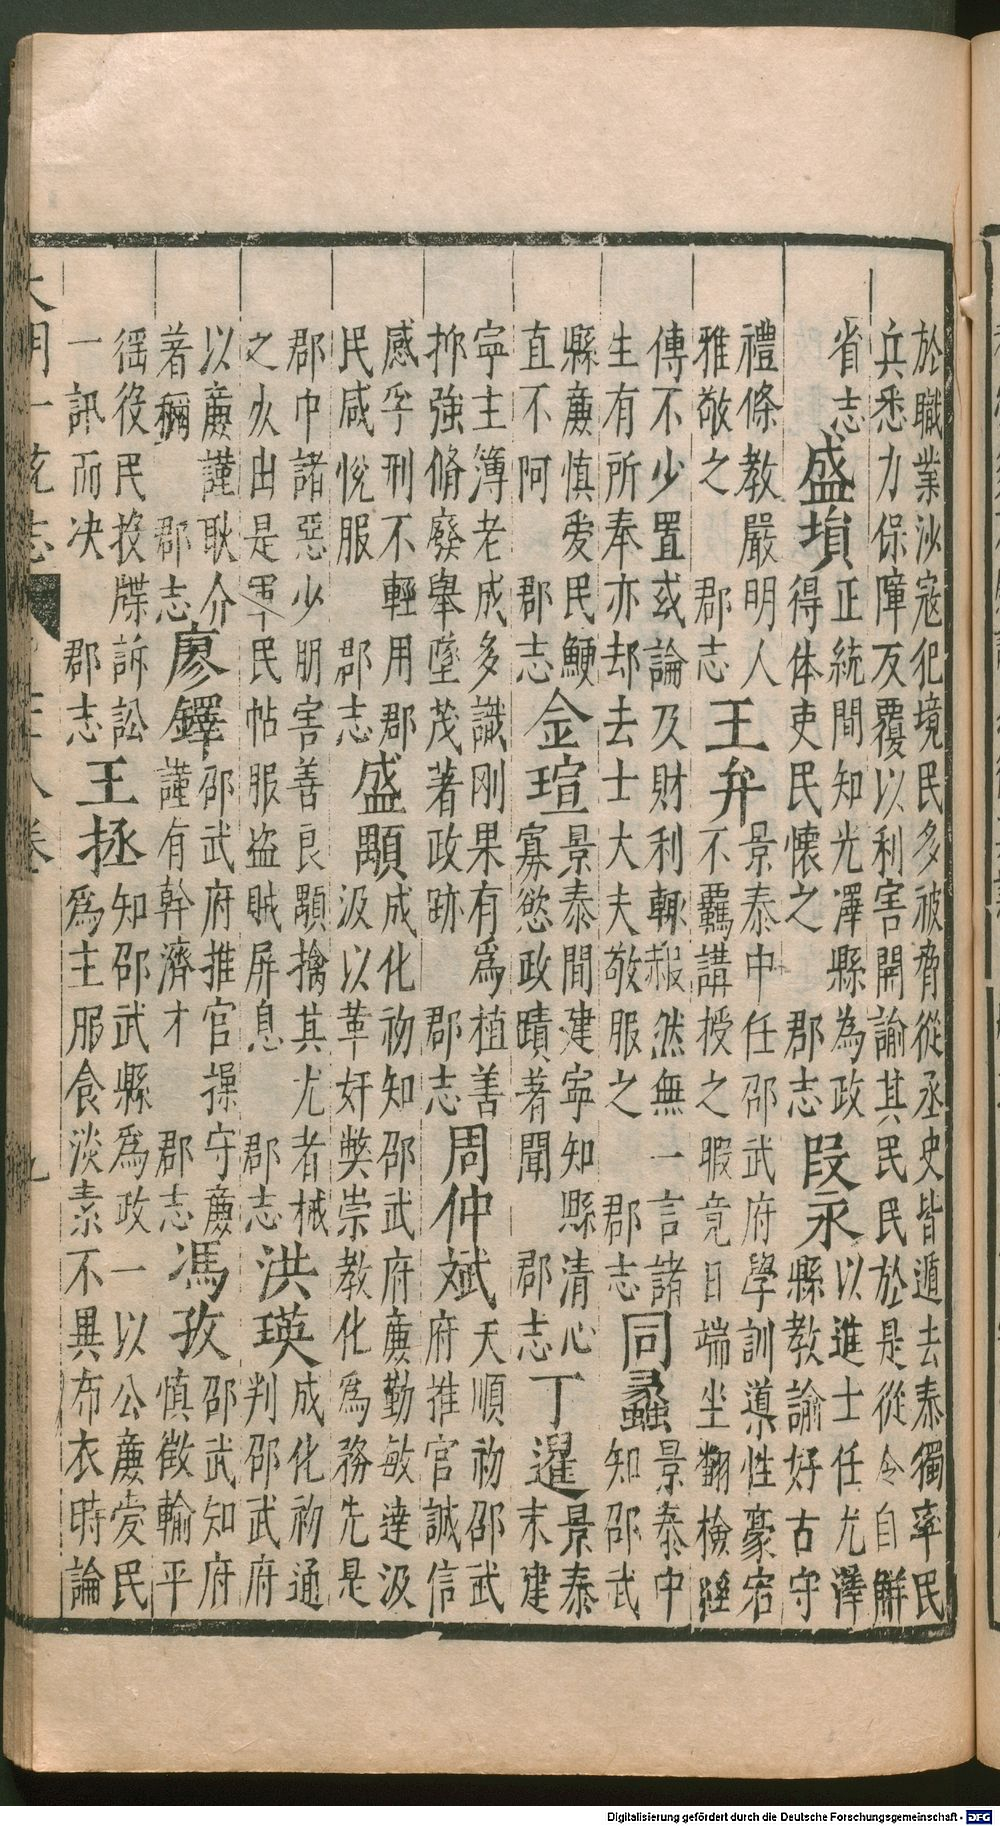 於職業沙寇犯境民多被脅從丞史皆遁去泰獨率民
兵悉力保障反覆以利害開諭其民民於是從令自觧
省志
盛塤
正統間知光澤縣為政
得体吏民懷之 郡志
段永
以進士任尤澤
縣教諭好古守
禮條教嚴明人
雅敬之 郡志
王弁
景泰中任邵武府學訓導性豪宕
不羈講授之暇竟日端坐翻檢經
傳不少置或論及財利輒赧然無一言諸
生有所奉亦却去士大夫敬服之 郡志
同蠡
景泰中
知邵武
縣亷慎爱民鯁
直不阿 郡志
金瑄
景泰間建寧知縣清心
寡慾政蹟著聞 郡志
丁暹
景泰
末建
寧主簿老成多識刚果有爲植善
抑強脩廢舉墜茂著政跡 郡志
周仲斌
天順初邵武
府推官誠信
感孚刑不輕用郡
民咸悅服 郡志
盛顒
成化初知邵武府亷勤敏達汲
汲以革奸獘崇教化爲務先是
郡中諸惡少朋害善良顒擒其尤者械
之火出是軍民帖服盜賊屏息 郡志
洪瑛
成化初通
判邵武府
以亷謹耿介
著稱 郡志
廖鐸
邵武府推官操守亷
謹有幹濟才 郡志
馮孜
邵武知府
慎徵輸平
徭役民投牒訴訟
一訊而决 郡志
王拯
知邵武縣爲政一以公亷爱民
爲主服食淡素不異布衣時論
Digitalisierung gefördert durch die Deutsche Forschungsgemeinschaft - DFG